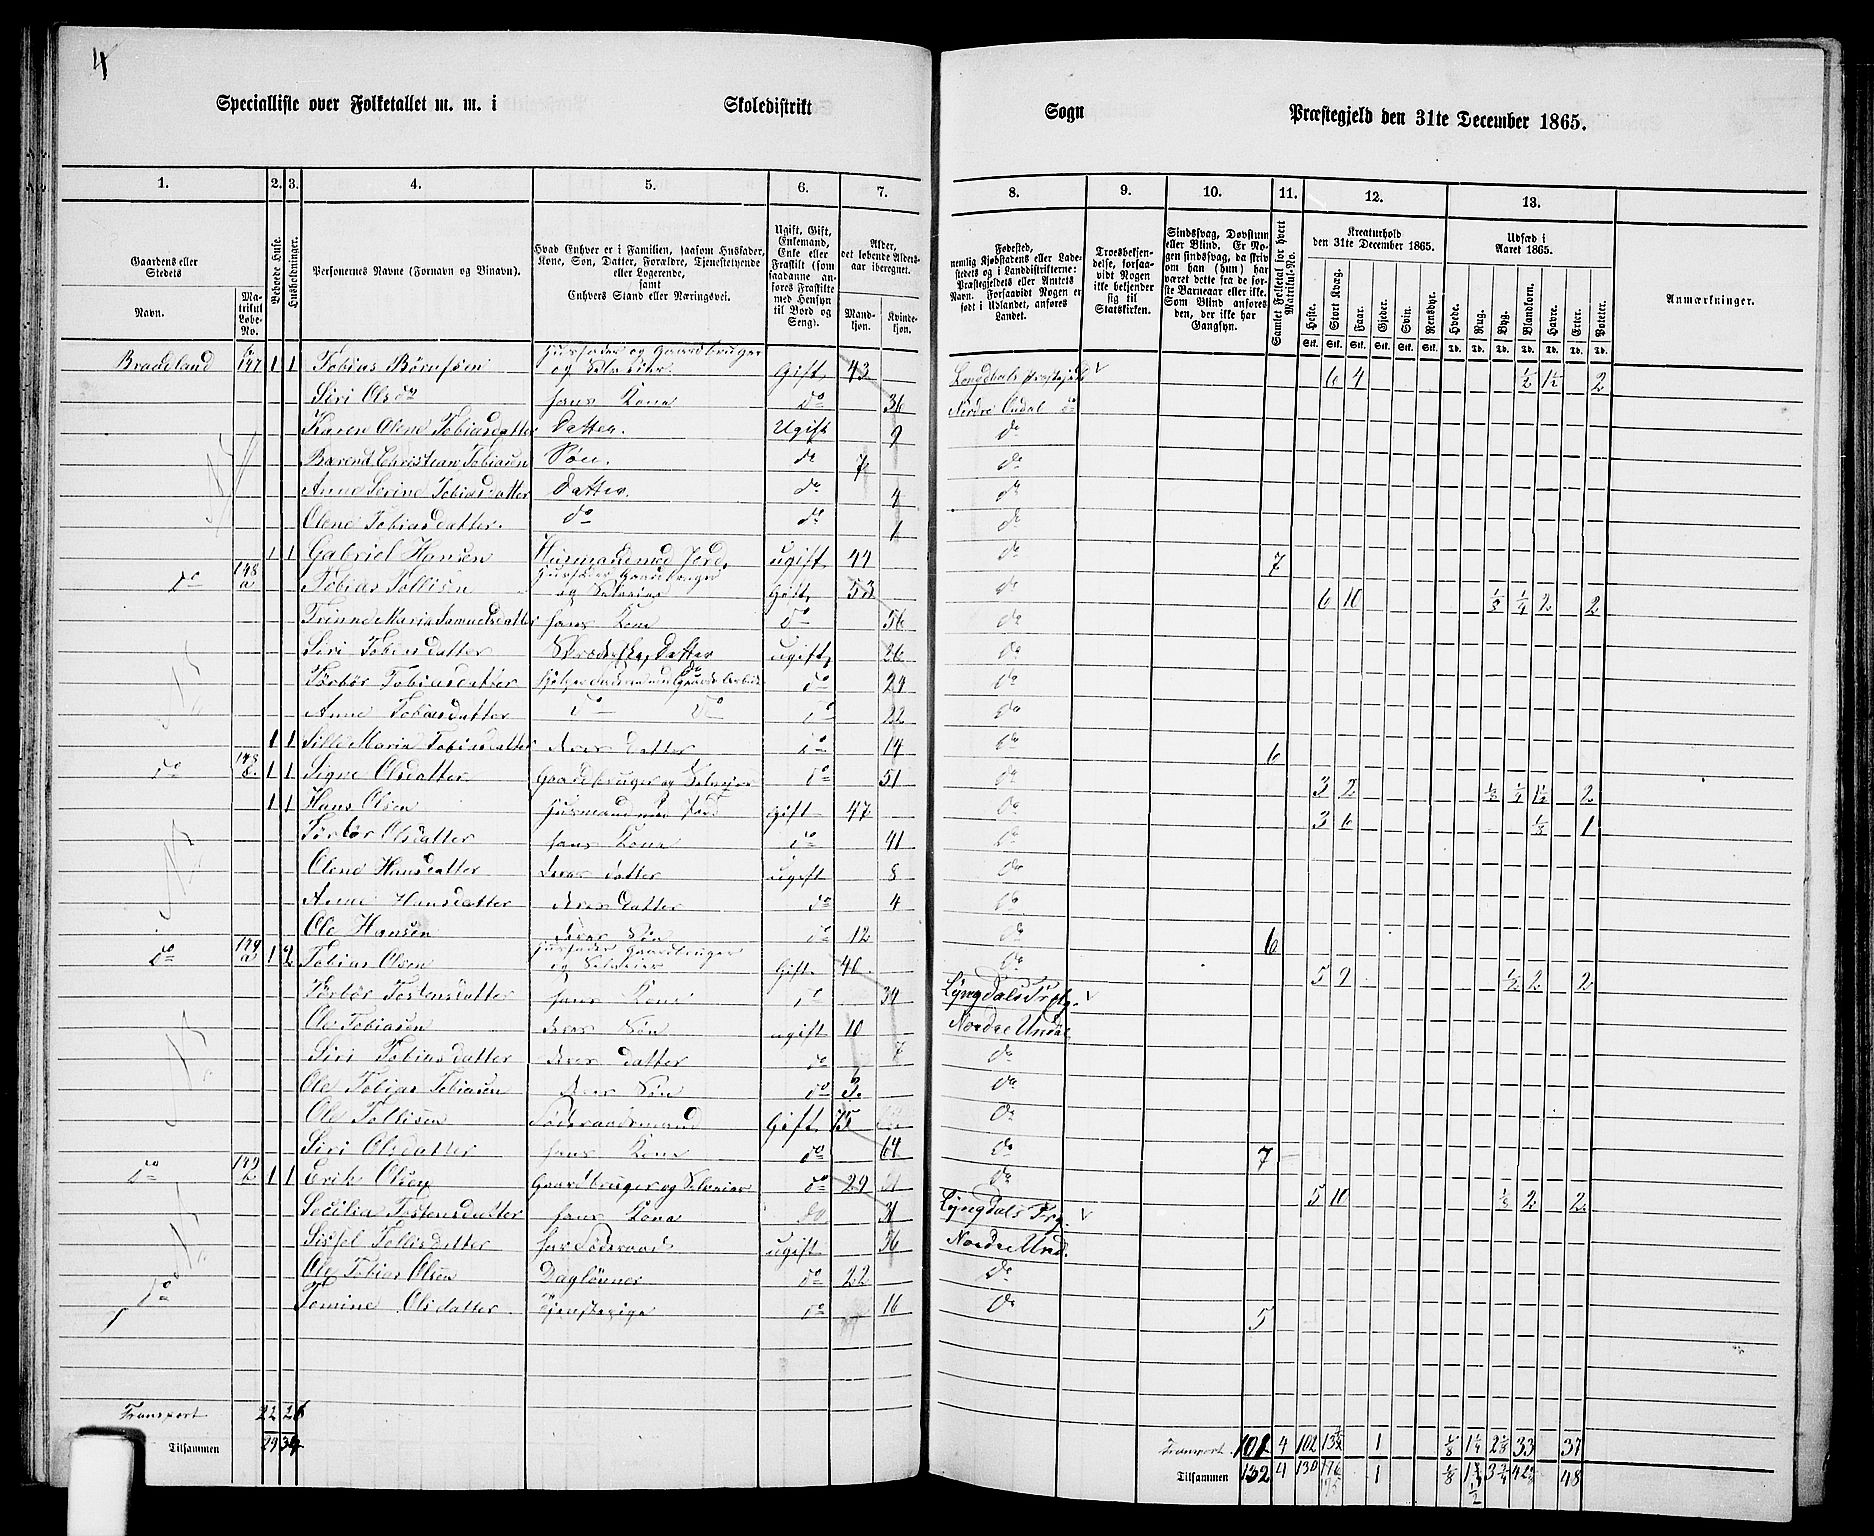 4
Specialliste over Folketallet m. m. i Skoledistrikt Sogn Præstegjeld den 31te December 1865.
1. 2. 3. 4. 5. 6. 7. 8. 9. 10. 11. 12. 13.
Gaardens eller Stedets
Navn.
Matrikul Løbe-No.
Beboede Huse.
Husholdninger.
Personernes Navne (Fornavn og Tilnavn).
Hvad Enhver er i Familien, saasom Husfader, Kone, Søn, Datter, Forældre, Tjenestetyende eller Logerende, samt Enhvers Stand eller Næringsvei.
Ugift, Gift, Enkemand, Enke eller Fraskilt (som saadanne anføres Fraskilte med Hensyn til Bord og Seng).
Alder, det løbende Aldersaar iberegnet.
Mandkjøn. Kvindekjøn.
Fødested, nemlig Kjøbstadens eller Ladestedets og i Landdistrikterne: Præstegjeldets eller Amtets Navn. Forsaavidt Nogen er født i Udlandet, anføres Landet.
Troesbekjendelse, forsaavidt Nogen ikke bekjender sig til Statskirken.
Sindssvag, Døvstum eller Blind. Er Nogen sindssvag, da skriv om han (hun) har været dette fra de første Barneaar eller ikke. Som Blind anføres den, der ikke har Gangsyn.
Samlet Folketal for hvert Matrikul-No.
Kreaturhold den 31te December 1865.
Heste. Stort Kvæg. Faar. Gjeder. Svin. Rensdyr.
Stk. Stk. Stk. Stk. Stk. Stk.
Udsæd i Aaret 1865.
Hvede. Rug. Byg. Blandkorn. Havre. Erter. Poteter.
Td. Td. Td. Td. Td. Td. Td.
Anmærkninger.
Bradeland 147 1 1 Tobias Børufsen Husfader og Gaardbruger og Selveier Gift 43 6 4 1/2 1 1/2 2
Siri Olsd hans Kone do 36 Nordre Undal do
Karen Olene Tobiasdatter Datter. Ugift 9 do
Barend Christian Tobiasen Søn. do 7 do
Anne Serine Tobiasdatter Datter. do 4 do
Olene Tobiasdatter. do do 1 do
1 1 Gabriel Hansen Huusmand med Jord, ugift 44 do 7
do 148 a Tobias Tollisen Husfader Gaardbruger og Selveier Gift 53 do 6 10 1/8 1/4 2 2
Trinne Maria Samuelsdatter hans Kone do 56 do
Siri Tobiasdatter Skrædderske, Datter ugift, 26 do
Törbör Tobiasdatter do 24 do
Anne Tobiasdatter do do do 22 do
1 1 Sille Maria Tobiasdatter deres Datter do 14 do 6
do 148 b. 1 1 Signe Olsdatter Gaardbruger og Selveier do 51 do 3 2 1/8 1/4 1 1/2 2
1 1 Hans Olsen Husmand med Jord Gift 47 do 3 6 1/3 1
Törbör Olsdatter hans Kone do 41 do
Olene Hansdatter deres datter ugift 8 do
Anne Hansdatter deres datter do 4 do
Ole Hansen deres Søn do 12 do 6
do 149 a 1 2 Tobias Olsen Husfader Gaardbruger og Selveier Gift 40 do 5 2 1/2 2 2
Törbör Tostensdatter hans Kone do 34 Lyngdals Prstg.
Ole Tobiasen deres Søn ugift 10 Nordre Undal
Siri Tobiasdatter deres datter do 7 do
Ole Tobias Tobiasen deres Søn do 3. do
Ole Tollisen Föderaadsmand Gift 75 do
Siri Olsdatter hans Kone do 64 do 7
do 149 b 1 1 Erik Olsen Gaardbruger og Selveier do 29 do 5 10 1/3 2 2
Secilia Tostensdatter hans Kone do 31 Lyngdals Prg.
Sissel Tollisdatter har Föderaad ugift 56 Nordre Und.
Ole Tobias Olsen Daglönner do 22 do
do Tomine Olsdatter Tjenstepige do 16 do 5
Transport 22 26 Transport 101 4 102 135 1 1/8 1 1/4 2 1/8 33 37
Tilsammen 29 34 Tilsammen 132 4 130 176 1 1/8 1 3/4 3 3/4 42 48